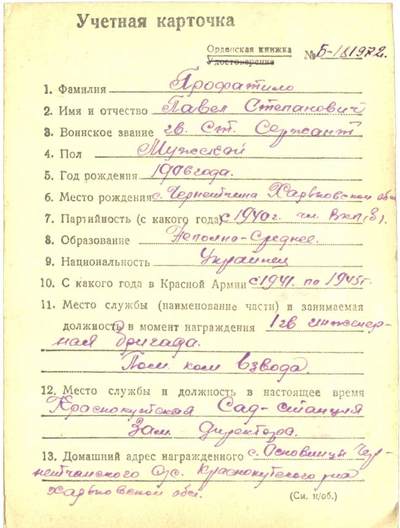 Учетная карточка
Орденская книжка
Удостоверение
№ Б-181972.
1. Фамилия Профатило
2. Имя и отчество Павел Степанович
3. Воинское звание гв. ст. Сержант
4. Пол Мужской
5. Год рождения 1906 года.
6. Место рождения с. Чернетчина Харьковской обл
7. Партийность (с какого года) с 1940 г. чл. ВКП(б).
8. Образование Неполно-Среднее.
9. Национальность Украинец
10. С какого года в Красной Армии с 1941. по 1945г.
11. Место службы (наименование части) и занимаемая
должность в момент награждения 1 гв инженер-
ная бригада.
Пом. ком взвода.
12. Место службы и должность в настоящее время
Краснокутская Сад-станция
Зам. директора.
13. Домашний адрес награжденного с. Основинцы Чер-
нетчанского с/с. Краснокутского р-на
Харьковской обл.
(См. н/об.)